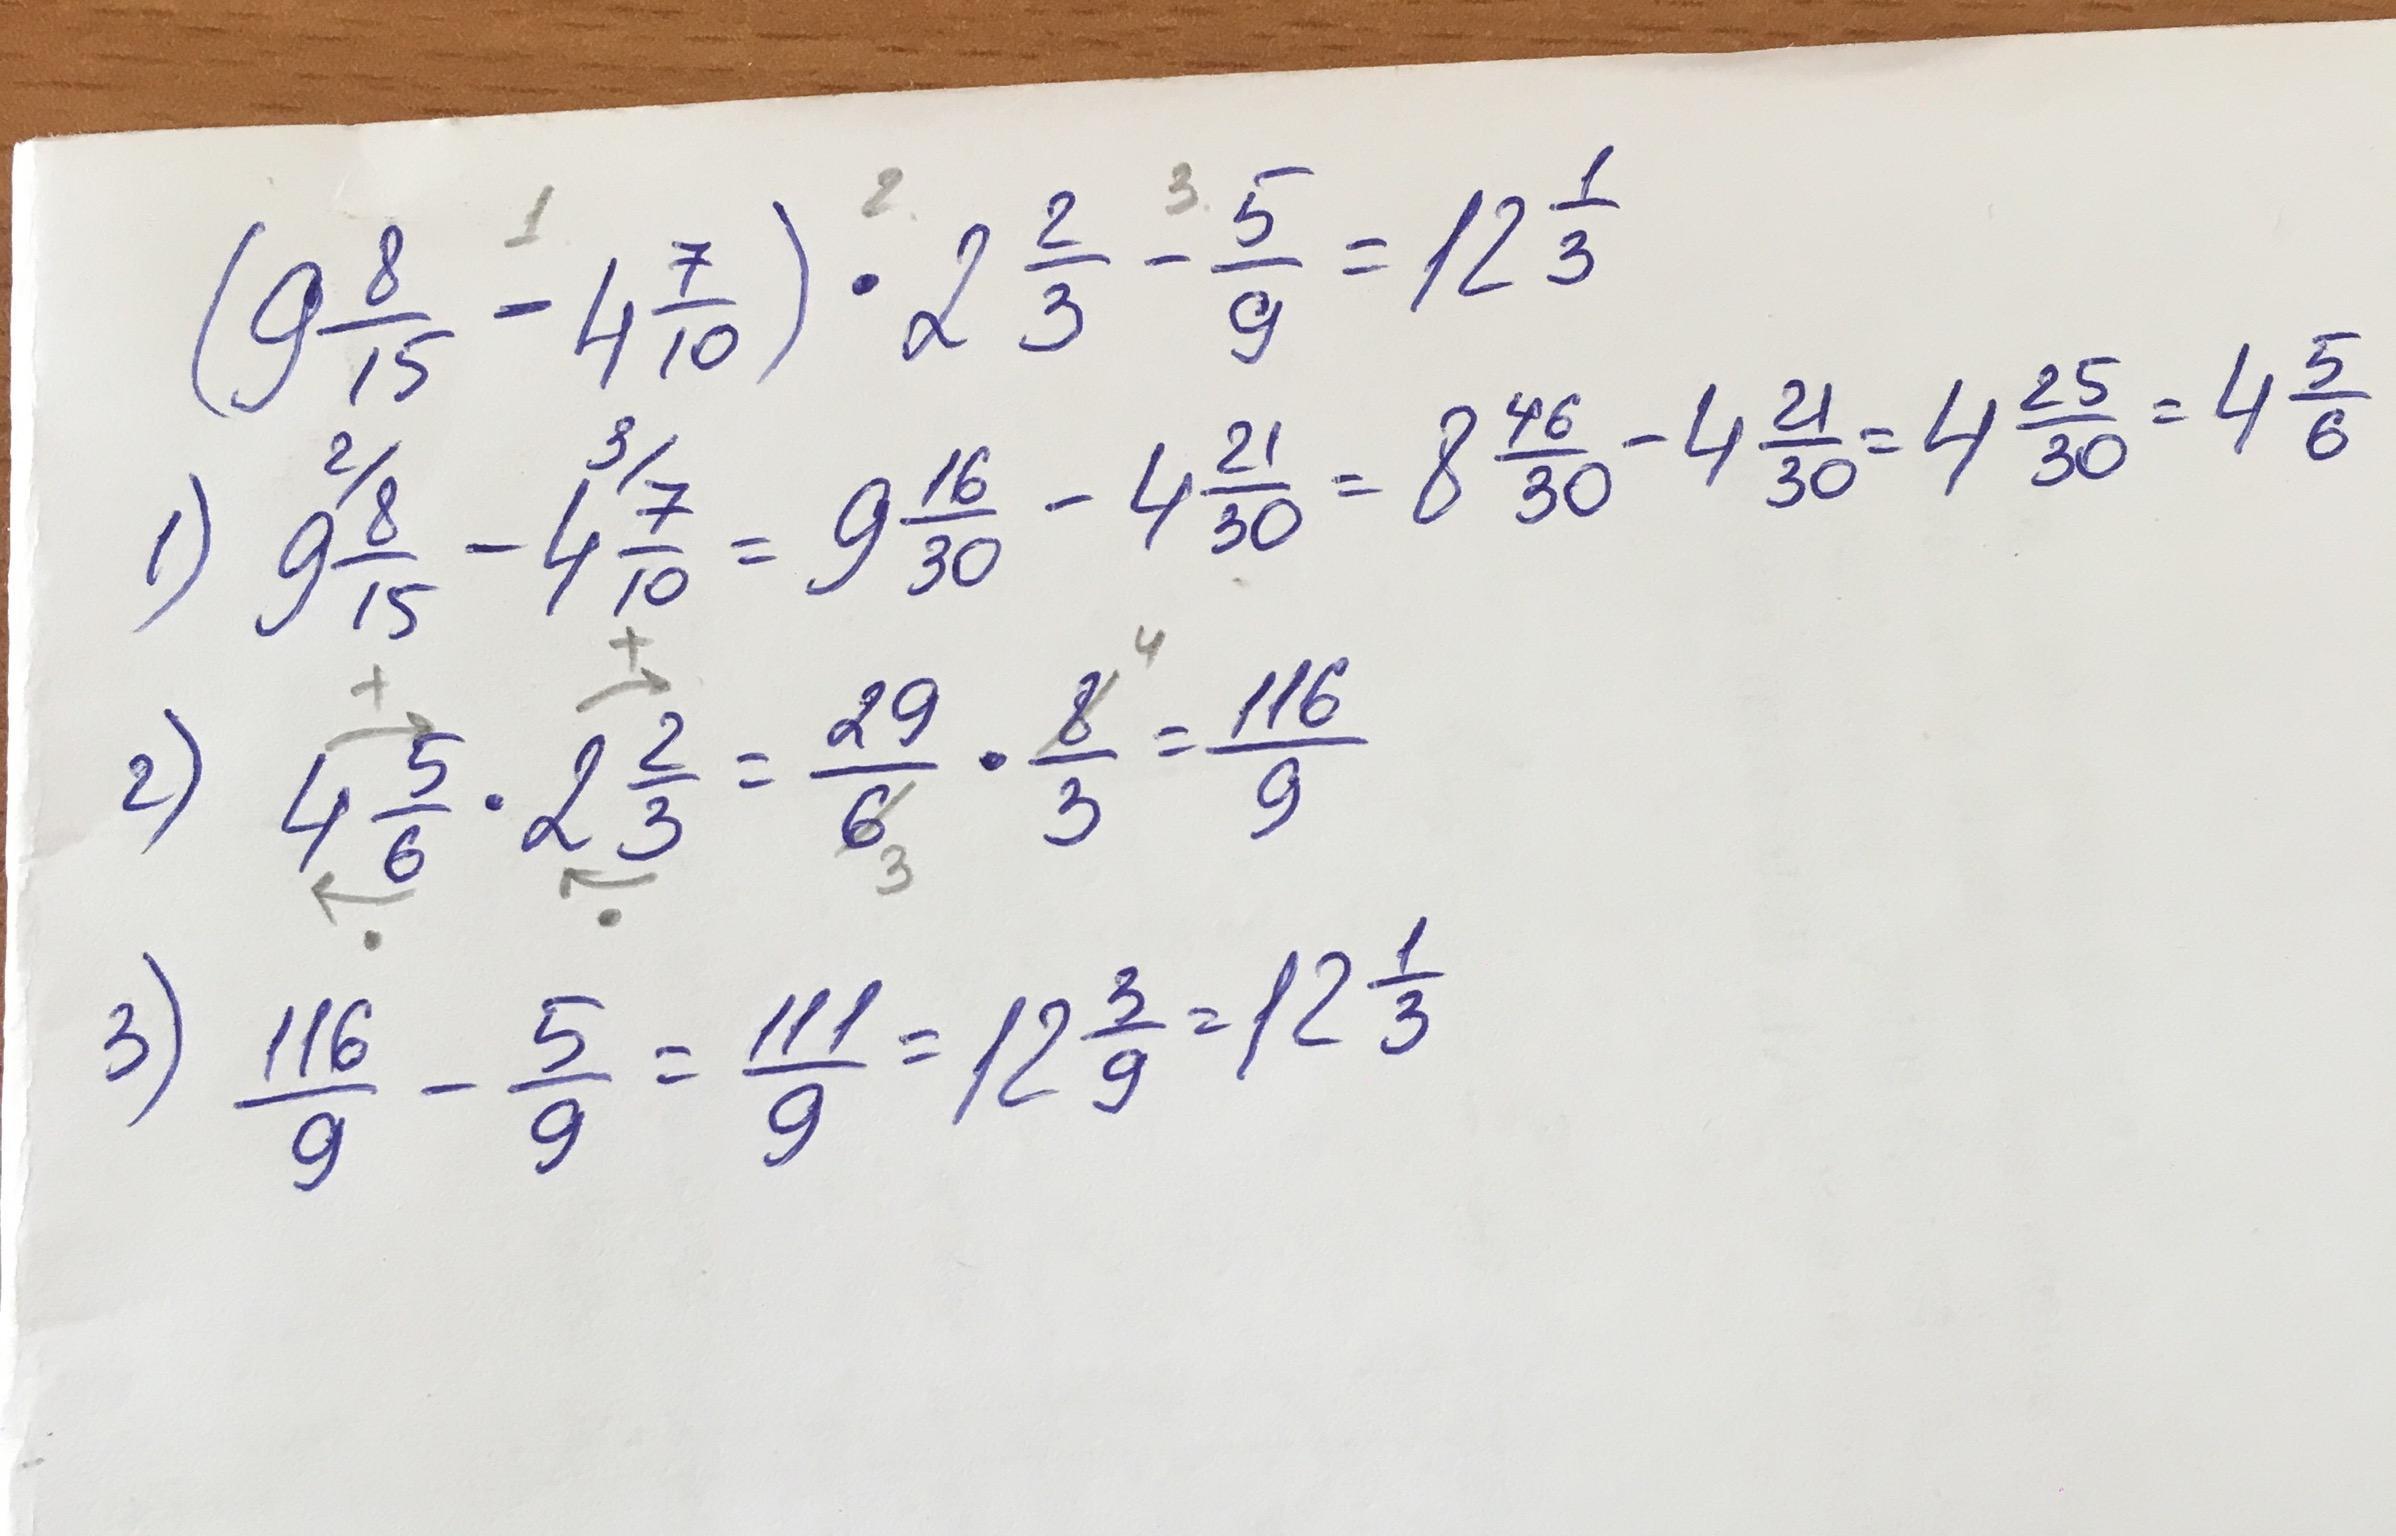 1 2. 3.
(9 8/15 - 4 7/10) · 2 2/3 - 5/9 = 12 1/3
1) 9 ²/8/15 - 4 ³/7/10 = 9 16/30 - 4 21/30 = 8 46/30 - 4 21/30 = 4 25/30 = 4 5/6
+ + 4
2) 4 5/6 · 2 2/3 = 29/6 · 8/3 = 116/9
· · 3
3) 116/9 - 5/9 = 111/9 = 12 3/9 = 12 1/3